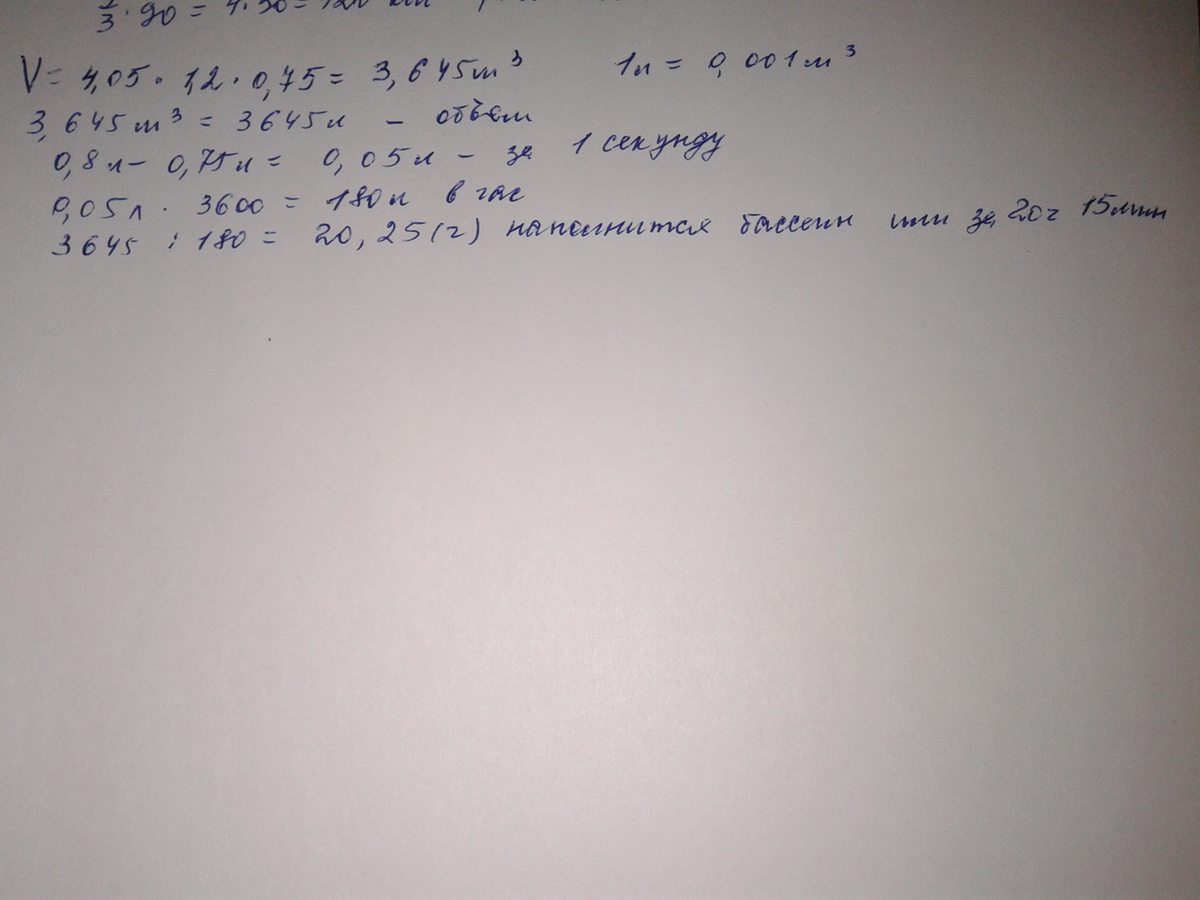 3 · 90 = 4 · 30 = 120
V = 4,05 · 1,2 · 0,75 = 3,645 м³ 1л = 0,001 м³
3,645 м³ = 3645 л – объем
0,8 л – 0,75 л = 0,05 л – за 1 секунду
0,05 л · 3600 = 180 л в час
3645 : 180 = 20,25 (ч) наполнится бассеин или за 20ч 15мин